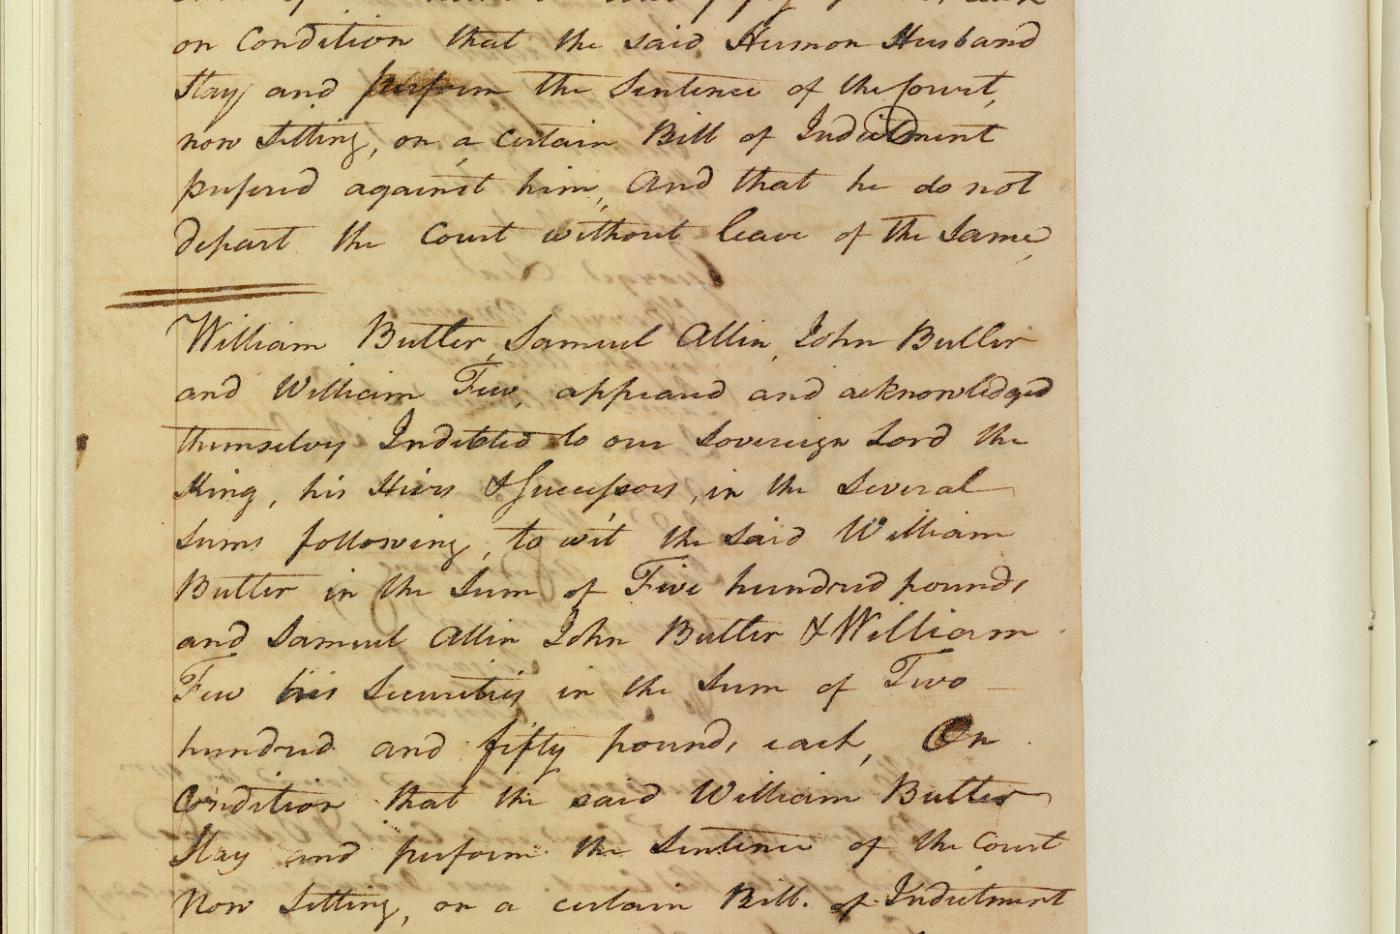 on Condition that the said Humon Husband
Stay and perform the Sentence of the Court,
now Sitting, on a certain Bill of Indictment
prefered against him, And that he do not
depart the Court without leave of the Same,
William Butler, Samuel Allin, John Butler
and William Few, appeared and acknowledged
themselves Indebted to our Sovereign Lord the
King, his Heirs & Successors, in the Several
Sums following, to wit the Said William
Butler in the Sum of Five hundred pounds
and Samuel Allin John Butler & William
Few his Securities in the Sum of Two
hundred and fifty pounds each, On
Condition that the said William Butler
Stay and perform the Sentence of the Court
Now Sitting, on a certain Bill. of Indictment